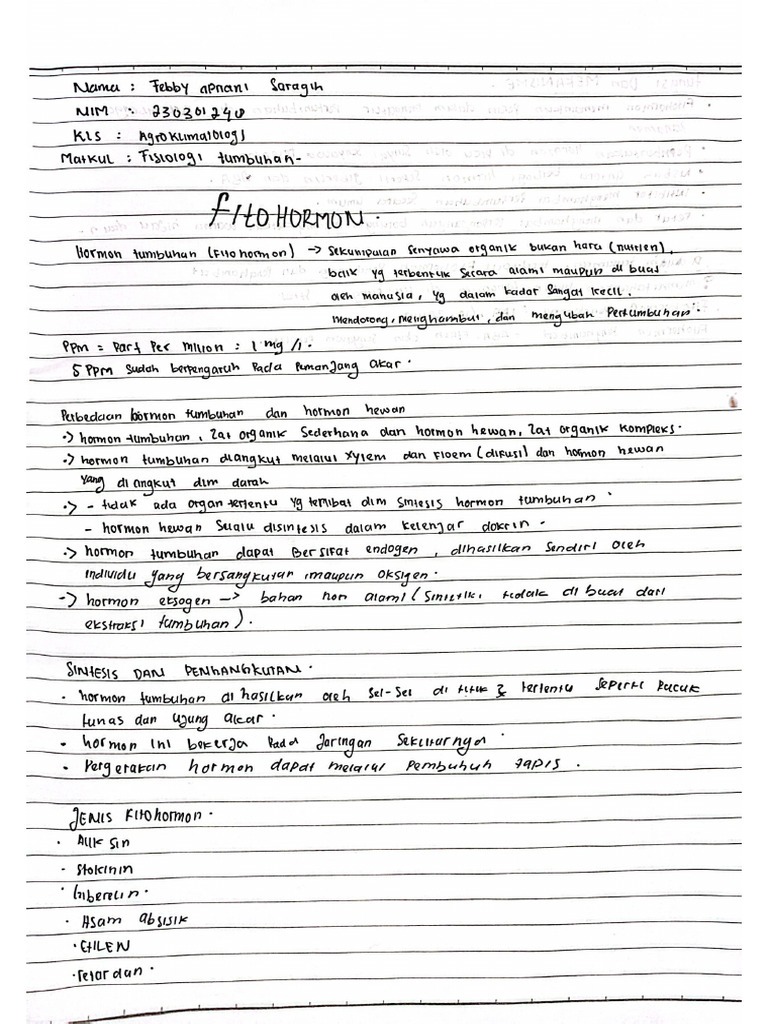 Nama : Febby apriani Saragih
NIM : 230301240
Kls : Agroklimatologi
Matkul : Fisiologi tumbuhan-
FITOHORMON.
Hormon tumbuhan (Fitohormon) → Sekumpulan senyawa organik bukan hara (nutrien),
baik yg terbentuk secara alami maupun di buat
oleh manusia, yg dalam kadar sangat kecil.
mendorong, menghambat, dan mengubah Pertumbuhan.
PPm = Part Per Milion : 1 mg/l.
5 PPm sudah berpengaruh Pada Pemanjang akar.
Perbedaan hormon tumbuhan dan hormon hewan
•> hormon tumbuhan, Zat organik Sederhana dan hormon hewan, Zat organik Kompleks.
•> hormon tumbuhan diangkut melalui xylem dan Floem (difusi) dan hormon hewan
yang di angkut dlm darah
•> - tidak ada organ tertentu yg terlibat dlm Sintesis hormon tumbuhan.
- hormon hewan Sualu disintesis dalam kelenjar dokrin.
•> hormon tumbuhan dapat Bersifat endogen, dihasilkan Sendiri oleh
individu yang bersangkutan maupun oksigen.
-> hormon eksogen -> bahan non alami (Sintetik, tidak di buat dari
ekstraksi tumbuhan).
SINTESIS DAN PENGANGKUTAN.
• hormon tumbuhan di hasilkan oleh Sel-Sel di titik 2 tertentu seperti Pucuk
tunas dan ujung akar.
• hormon ini bekerja Pada Jaringan Sekitarnya.
• Pergerakan hormon dapat melalui Pembuluh tapis.
JENIS Fitohormon.
• Auksin
• Sitokinin
• Giberelin.
• Asam absisik
• EtILEN
• retardan.